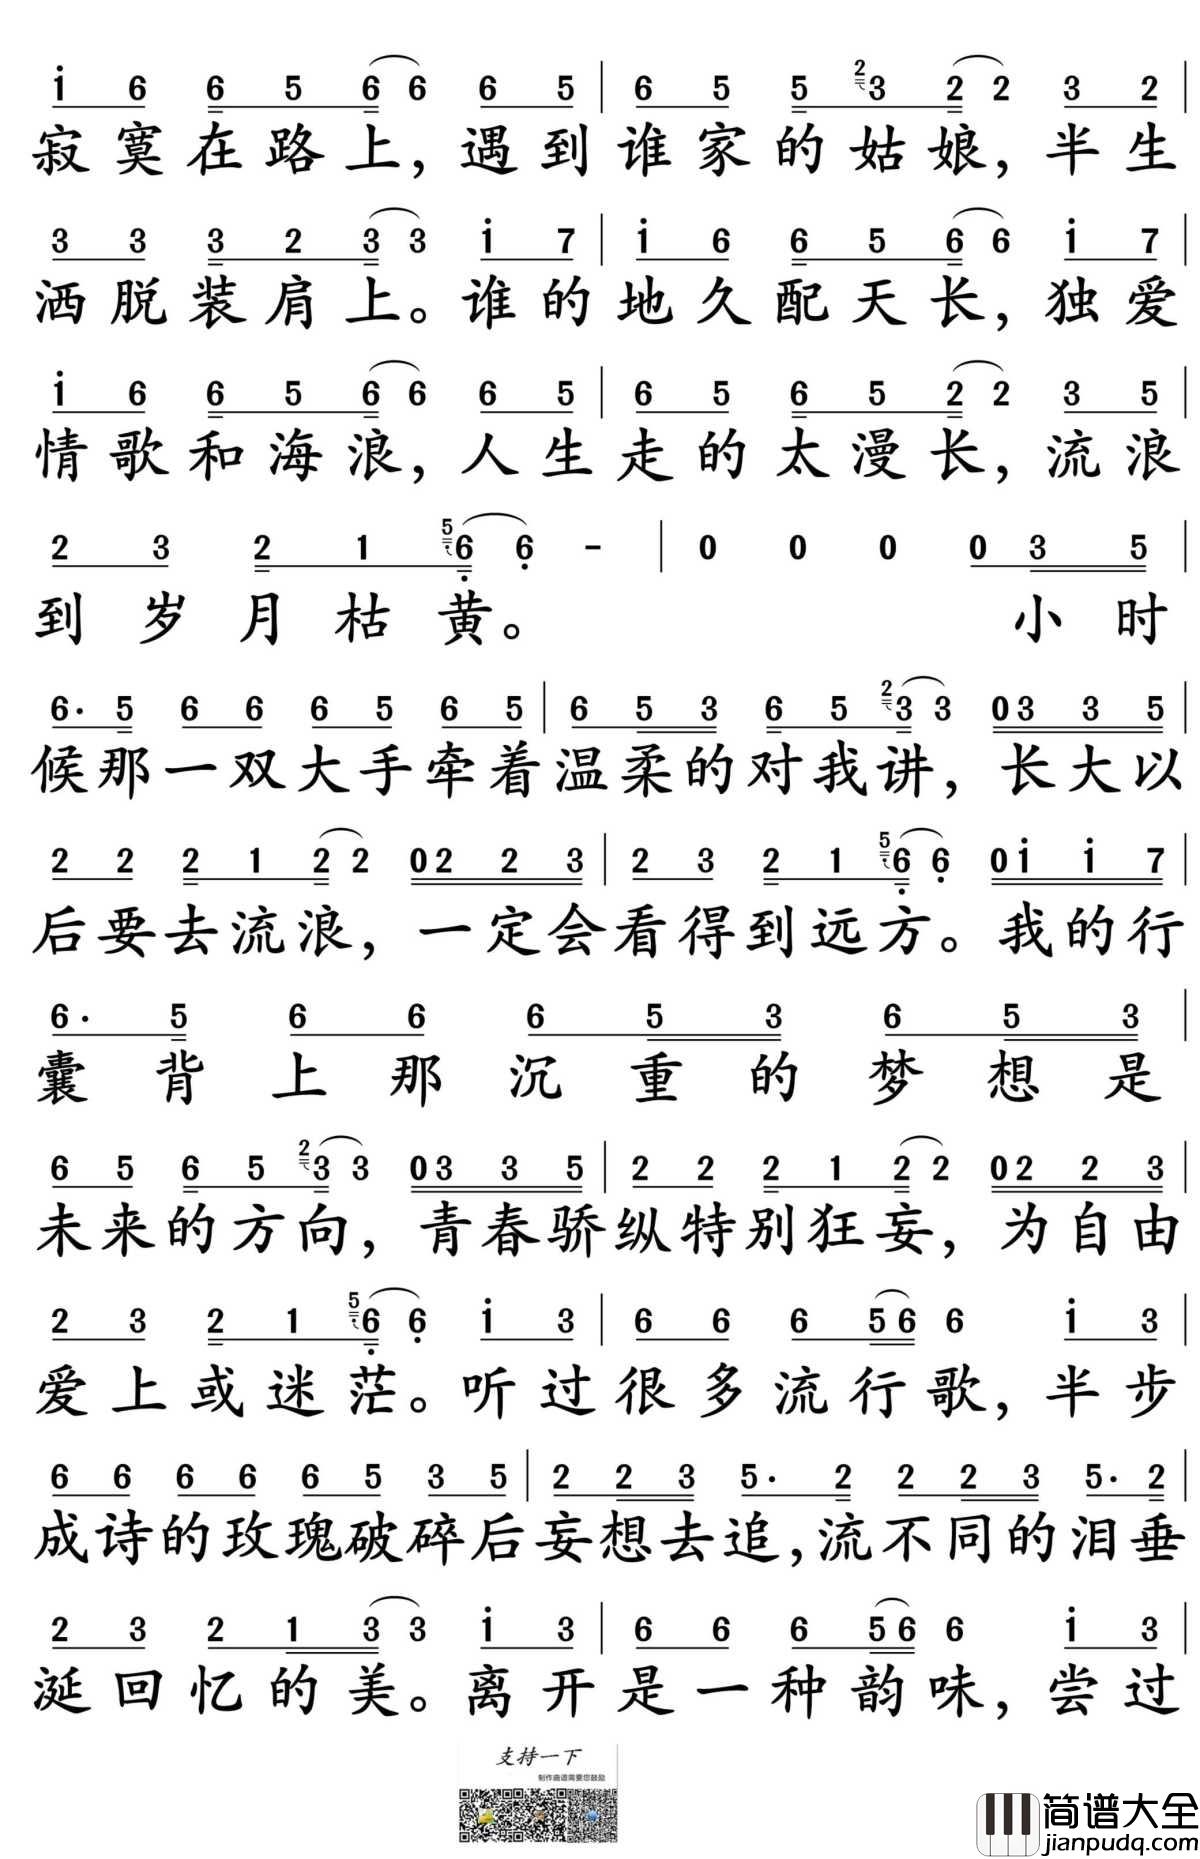 i 6 6 5 6 6 6 5 | 6 5 5 2 3 2 2 3 2 |
寂寞在路上,遇到谁家的姑娘,半生
3 3 3 2 3 3 i 7 | i 6 6 5 6 6 i 7 |
洒脱装肩上。谁的地久配天长,独爱
i 6 6 5 6 6 6 5 | 6 5 6 5 2 2 3 5 |
情歌和海浪,人生走的太漫长,流浪
2 3 2 1 5 6 6 - | 0 0 0 0 3 5 |
到岁月枯黄。 小时
6· 5 6 6 6 5 6 5 | 6 5 3 6 5 2 3 3 03 3 5 |
候那一双大手牵着温柔的对我讲,长大以
2 2 2 1 2 2 02 2 3 | 2 3 2 1 5 6 6 0i i 7 |
后要去流浪,一定会看得到远方。我的行
6· 5 6 6 6 5 3 6 5 3 |
囊背上那沉重的梦想是
6 5 6 5 2 3 3 03 3 5 | 2 2 2 1 2 2 02 2 3 |
未来的方向,青春骄纵特别狂妄,为自由
2 3 2 1 5 6 6 i 3 | 6 6 6 56 6 i 3 |
爱上或迷茫。听过很多流行歌,半步
6 6 6 6 6 5 3 5 | 2 2 3 5· 2 2 2 3 5· 2 |
成诗的玫瑰破碎后妄想去追,流不同的泪垂
2 3 2 1 3 3 i 3 | 6 6 6 56 6 i 3 |
涎回忆的美。离开是一种韵味,尝过
支持一下
制作曲谱需要您鼓励
简谱大全
jianpudq.com